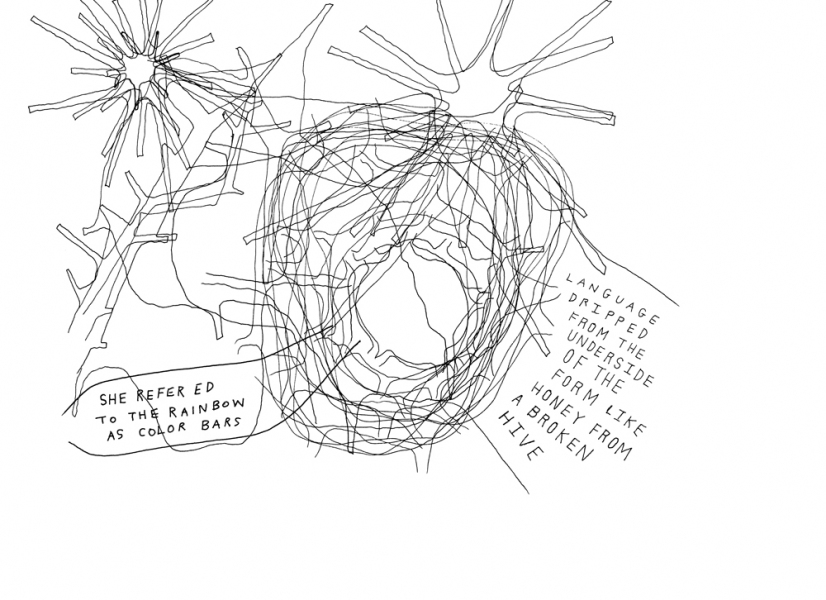 SHE REFER ED
TO THE RAINBOW
AS COLOR BARS
LANGUAGE
DRIPPED
FROM THE
UNDERSIDE
OF THE
FORM LIKE
HONEY FROM
A BROKEN
HIVE